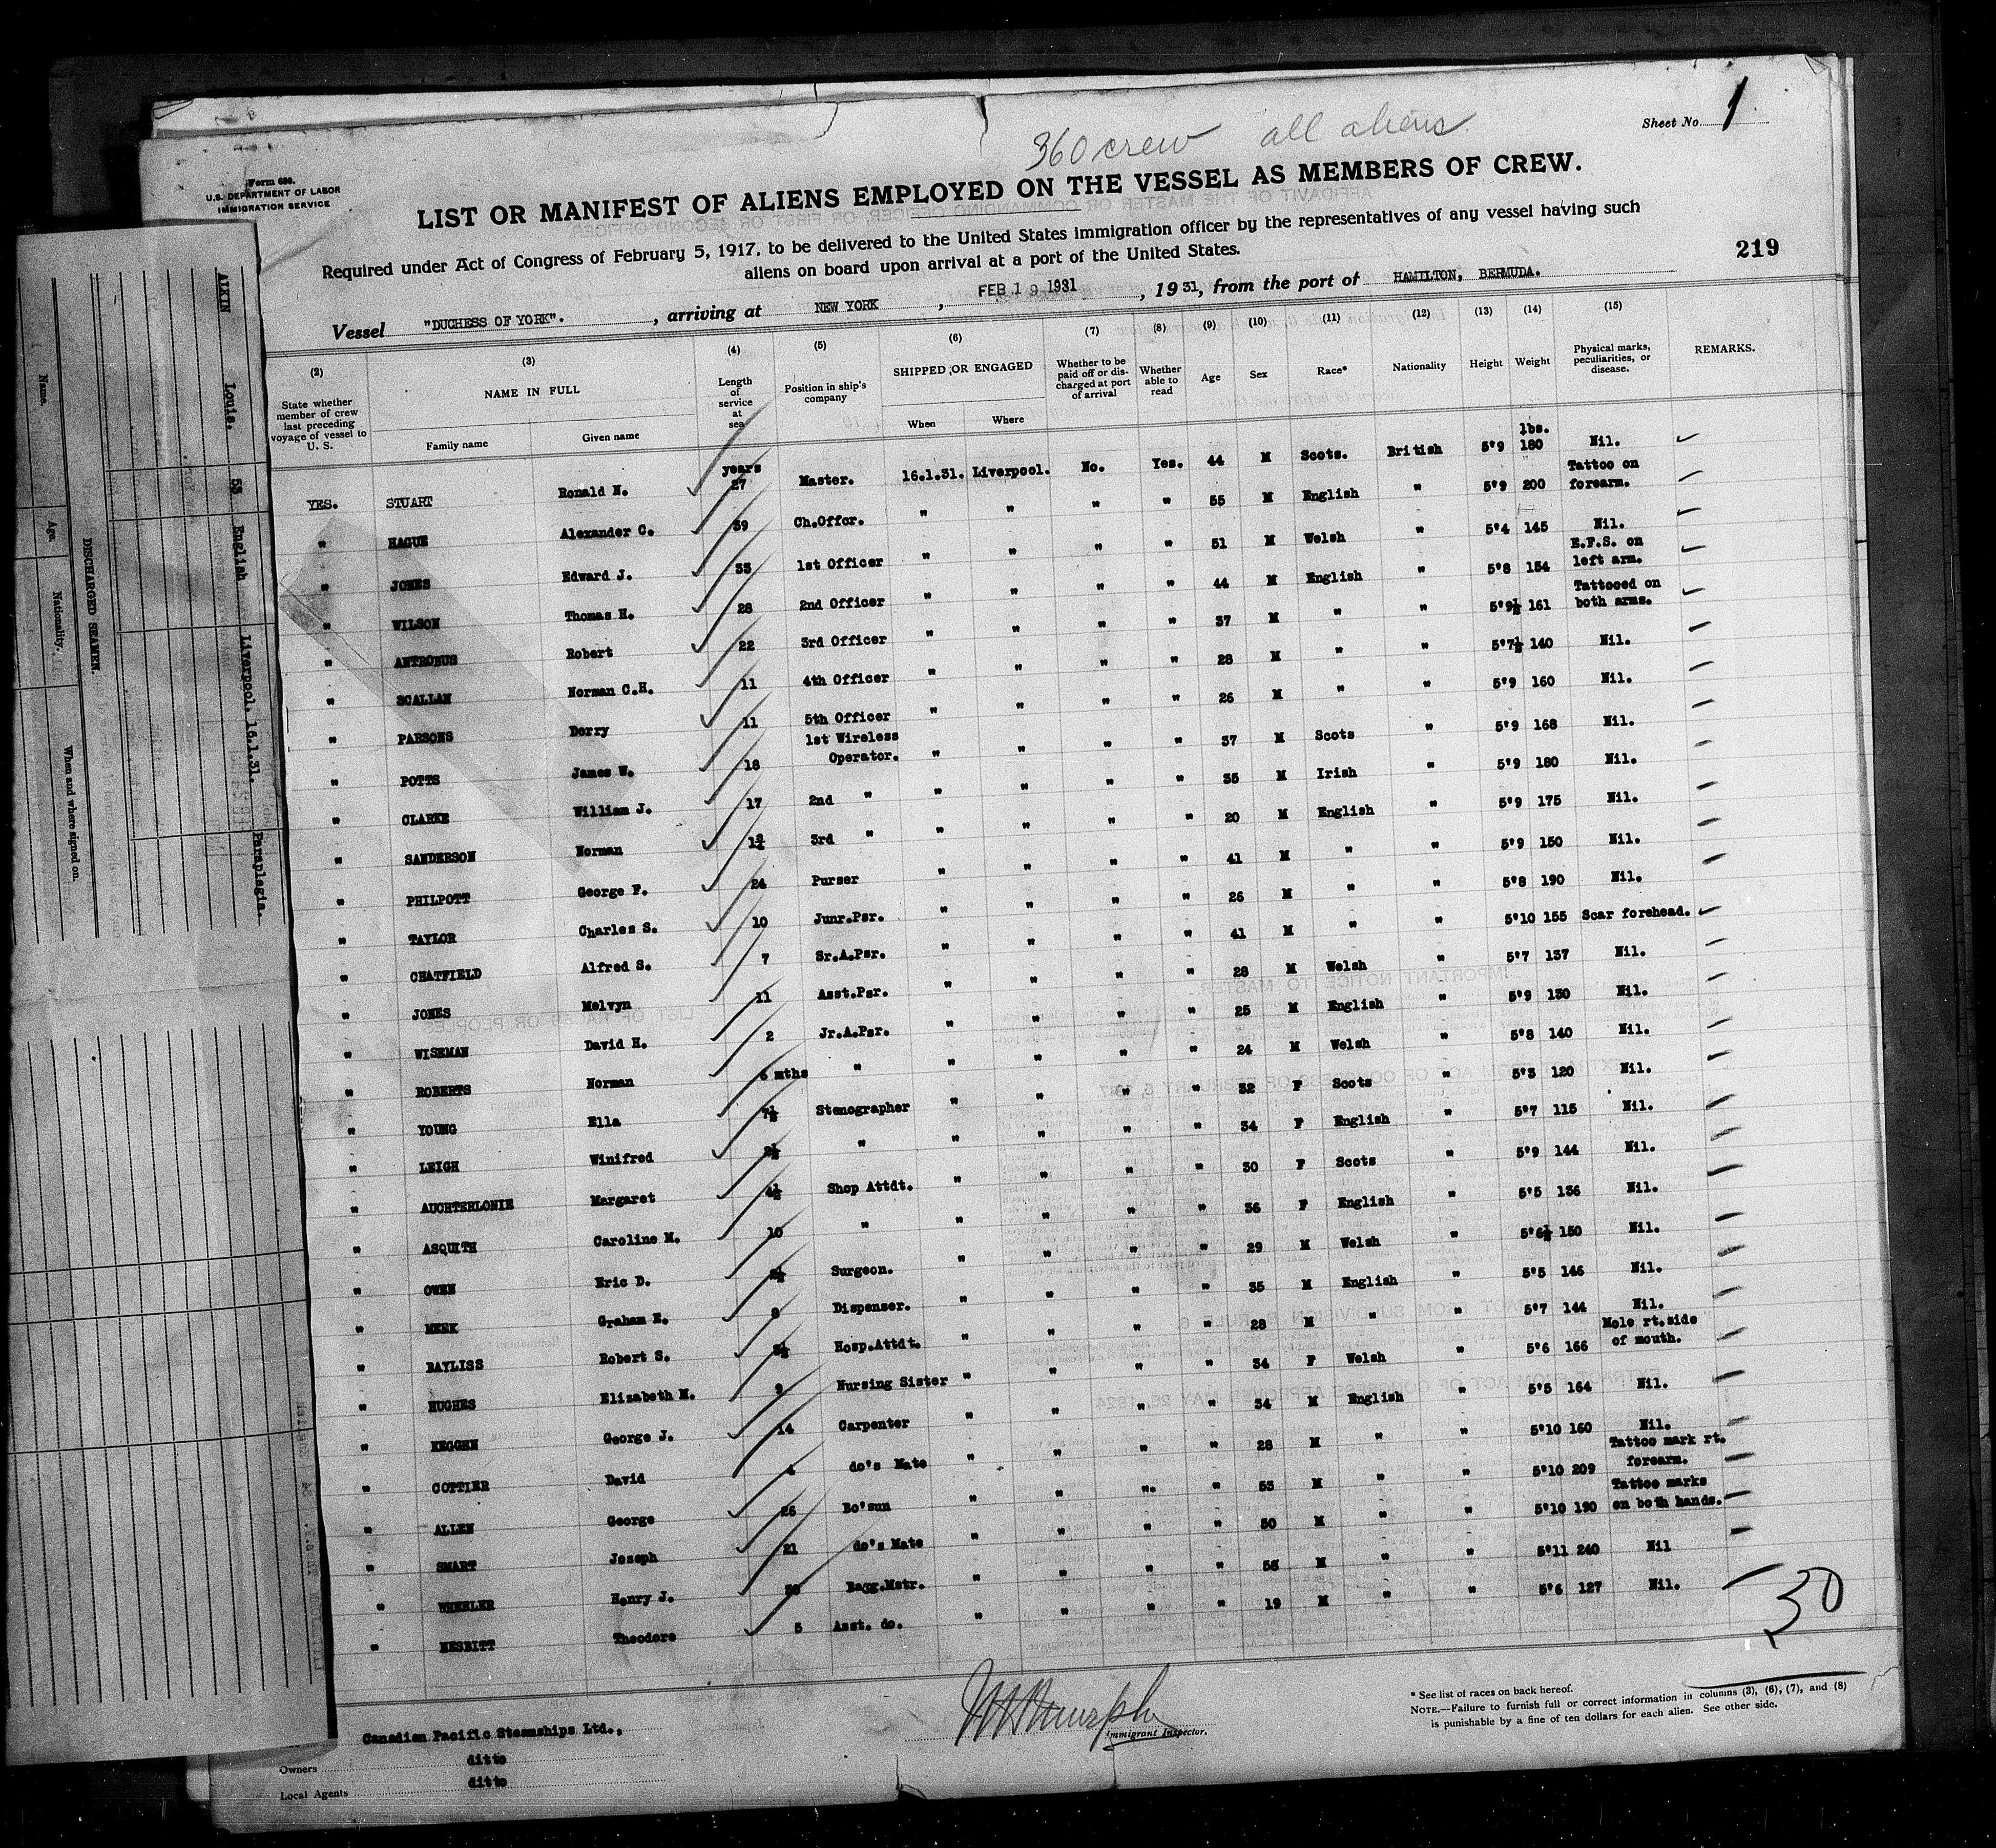 360 crew all aliens
Sheet No. 1
Form 680.
U.S. DEPARTMENT OF LABOR
IMMIGRATION SERVICE
LIST OR MANIFEST OF ALIENS EMPLOYED ON THE VESSEL AS MEMBERS OF CREW.
Required under Act of Congress of February 5, 1917, to be delivered to the United States immigration officer by the representatives of any vessel having such
aliens on board upon arrival at a port of the United States.
219
Vessel "DUCHESS OF YORK". , arriving at NEW YORK , FEB 19 1931 , 1931, from the port of HAMILTON, BERMUDA.
(2) (3) (4) (5) (6) (7) (8) (9) (10) (11) (12) (13) (14) (15)
State whether member of crew last preceding voyage of vessel to U. S. NAME IN FULL Family name Given name Length of service at sea Position in ship's company SHIPPED OR ENGAGED When Where Whether to be paid off or discharged at port of arrival Whether able to read Age Sex Race* Nationality Height Weight Physical marks, peculiarities, or disease. REMARKS.
years lbs.
YES. STUART Ronald N. 27 Master. 16.1.31. Liverpool. No. Yes. 44 M Scots. British 5'9 180 Nil.
" HAGUE Alexander C. 39 Ch.Offcr. " " " " 55 M English " 5'9 200 Tattoo on forearm.
" JONES Edward J. 35 1st Officer " " " " 51 M Welsh " 5'4 145 Nil.
" WILSON Thomas H. 28 2nd Officer " " " " 44 M English " 5'8 154 E.F.S. on left arm.
" ANTROBUS Robert 22 3rd Officer " " " " 37 M " " 5'9½ 161 Tattooed on both arms.
" SCALLAN Norman C.H. 11 4th Officer " " " " 28 M " " 5'7½ 140 Nil.
" PARSONS Derry 11 5th Officer " " " " 26 M " " 5'9 160 Nil.
" POTTS James W. 18 1st Wireless Operator. " " " " 37 M Scots " 5'9 168 Nil.
" CLARKE William J. 17 2nd " " " " " 35 M Irish " 5'9 180 Nil.
" SANDERSON Norman 3rd " " " " " 20 M English " 5'9 175 Nil.
" PHILPOTT George F. 24 Purser " " " " 41 M " " 5'9 150 Nil.
" TAYLOR Charles S. 10 Junr.Psr. " " " " 26 M " " 5'8 190 Nil.
" CHATFIELD Alfred S. 7 Sr.A.Psr. " " " " 41 M " " 5'10 155 Scar forehead.
" JONES Melvyn 11 Asst.Psr. " " " " 28 M Welsh " 5'7 137 Nil.
" WISEMAN David H. 2 Jr.A.Psr. " " " " 25 M English " 5'9 130 Nil.
" ROBERTS Norman 6 mths " " " " " 24 M Welsh " 5'8 140 Nil.
" YOUNG Ella 7½ Stenographer " " " " 32 F Scots " 5'3 120 Nil.
" LEIGH Winifred " " " " " 34 F English " 5'7 115 Nil.
" AUCHTERLONIE Margaret 4½ Shop Attdt. " " " " 30 F Scots " 5'9 144 Nil.
" ASQUITH Caroline M. 10 " " " " " 36 F English " 5'5 136 Nil.
" OWEN Eric D. Surgeon. " " " " 29 M Welsh " 5'6½ 150 Nil.
" MEEK Graham E. 8 Dispenser. " " " " 35 M English " 5'5 146 Nil.
" BAYLISS Robert S. Hosp.Attdt. " " " " 28 M " " 5'7 144 Nil.
" HUGHES Elizabeth M. 9 Nursing Sister " " " " 34 F Welsh " 5'6 166 Mole rt.side of mouth.
" KEGGEN George J. 14 Carpenter " " " " 34 M English " 5'5 164 Nil.
" COTTIER David do's Mate " " " " 28 M " " 5'10 160 Nil.
" ALLEN George 26 Bo'sun " " " " 55 M " " 5'10 209 Tattoo mark rt. forearm.
" SMART Joseph 21 do's Mate " " " " 50 M " " 5'10 190 Tattoo marks on both hands.
" WHEELER Henry J. Bagg.Mstr. " " " " 56 M " " 5'11 240 Nil
" NESBITT Theodore 5 Asst. do. " " " " 19 M " " 5'6 127 Nil.
30
Immigrant Inspector.
* See list of races on back hereof.
NOTE.—Failure to furnish full or correct information in columns (3), (6), (7), and (8)
is punishable by a fine of ten dollars for each alien. See other side.
Canadian Pacific Steamships Ltd.,
Owners ditto
Local Agents ditto
DISCHARGED SEAMEN.
Name. Age. Nationality. When and where signed on.
AIKIN Louis. 53 English Liverpool. 16.1.31. Paraplagia.